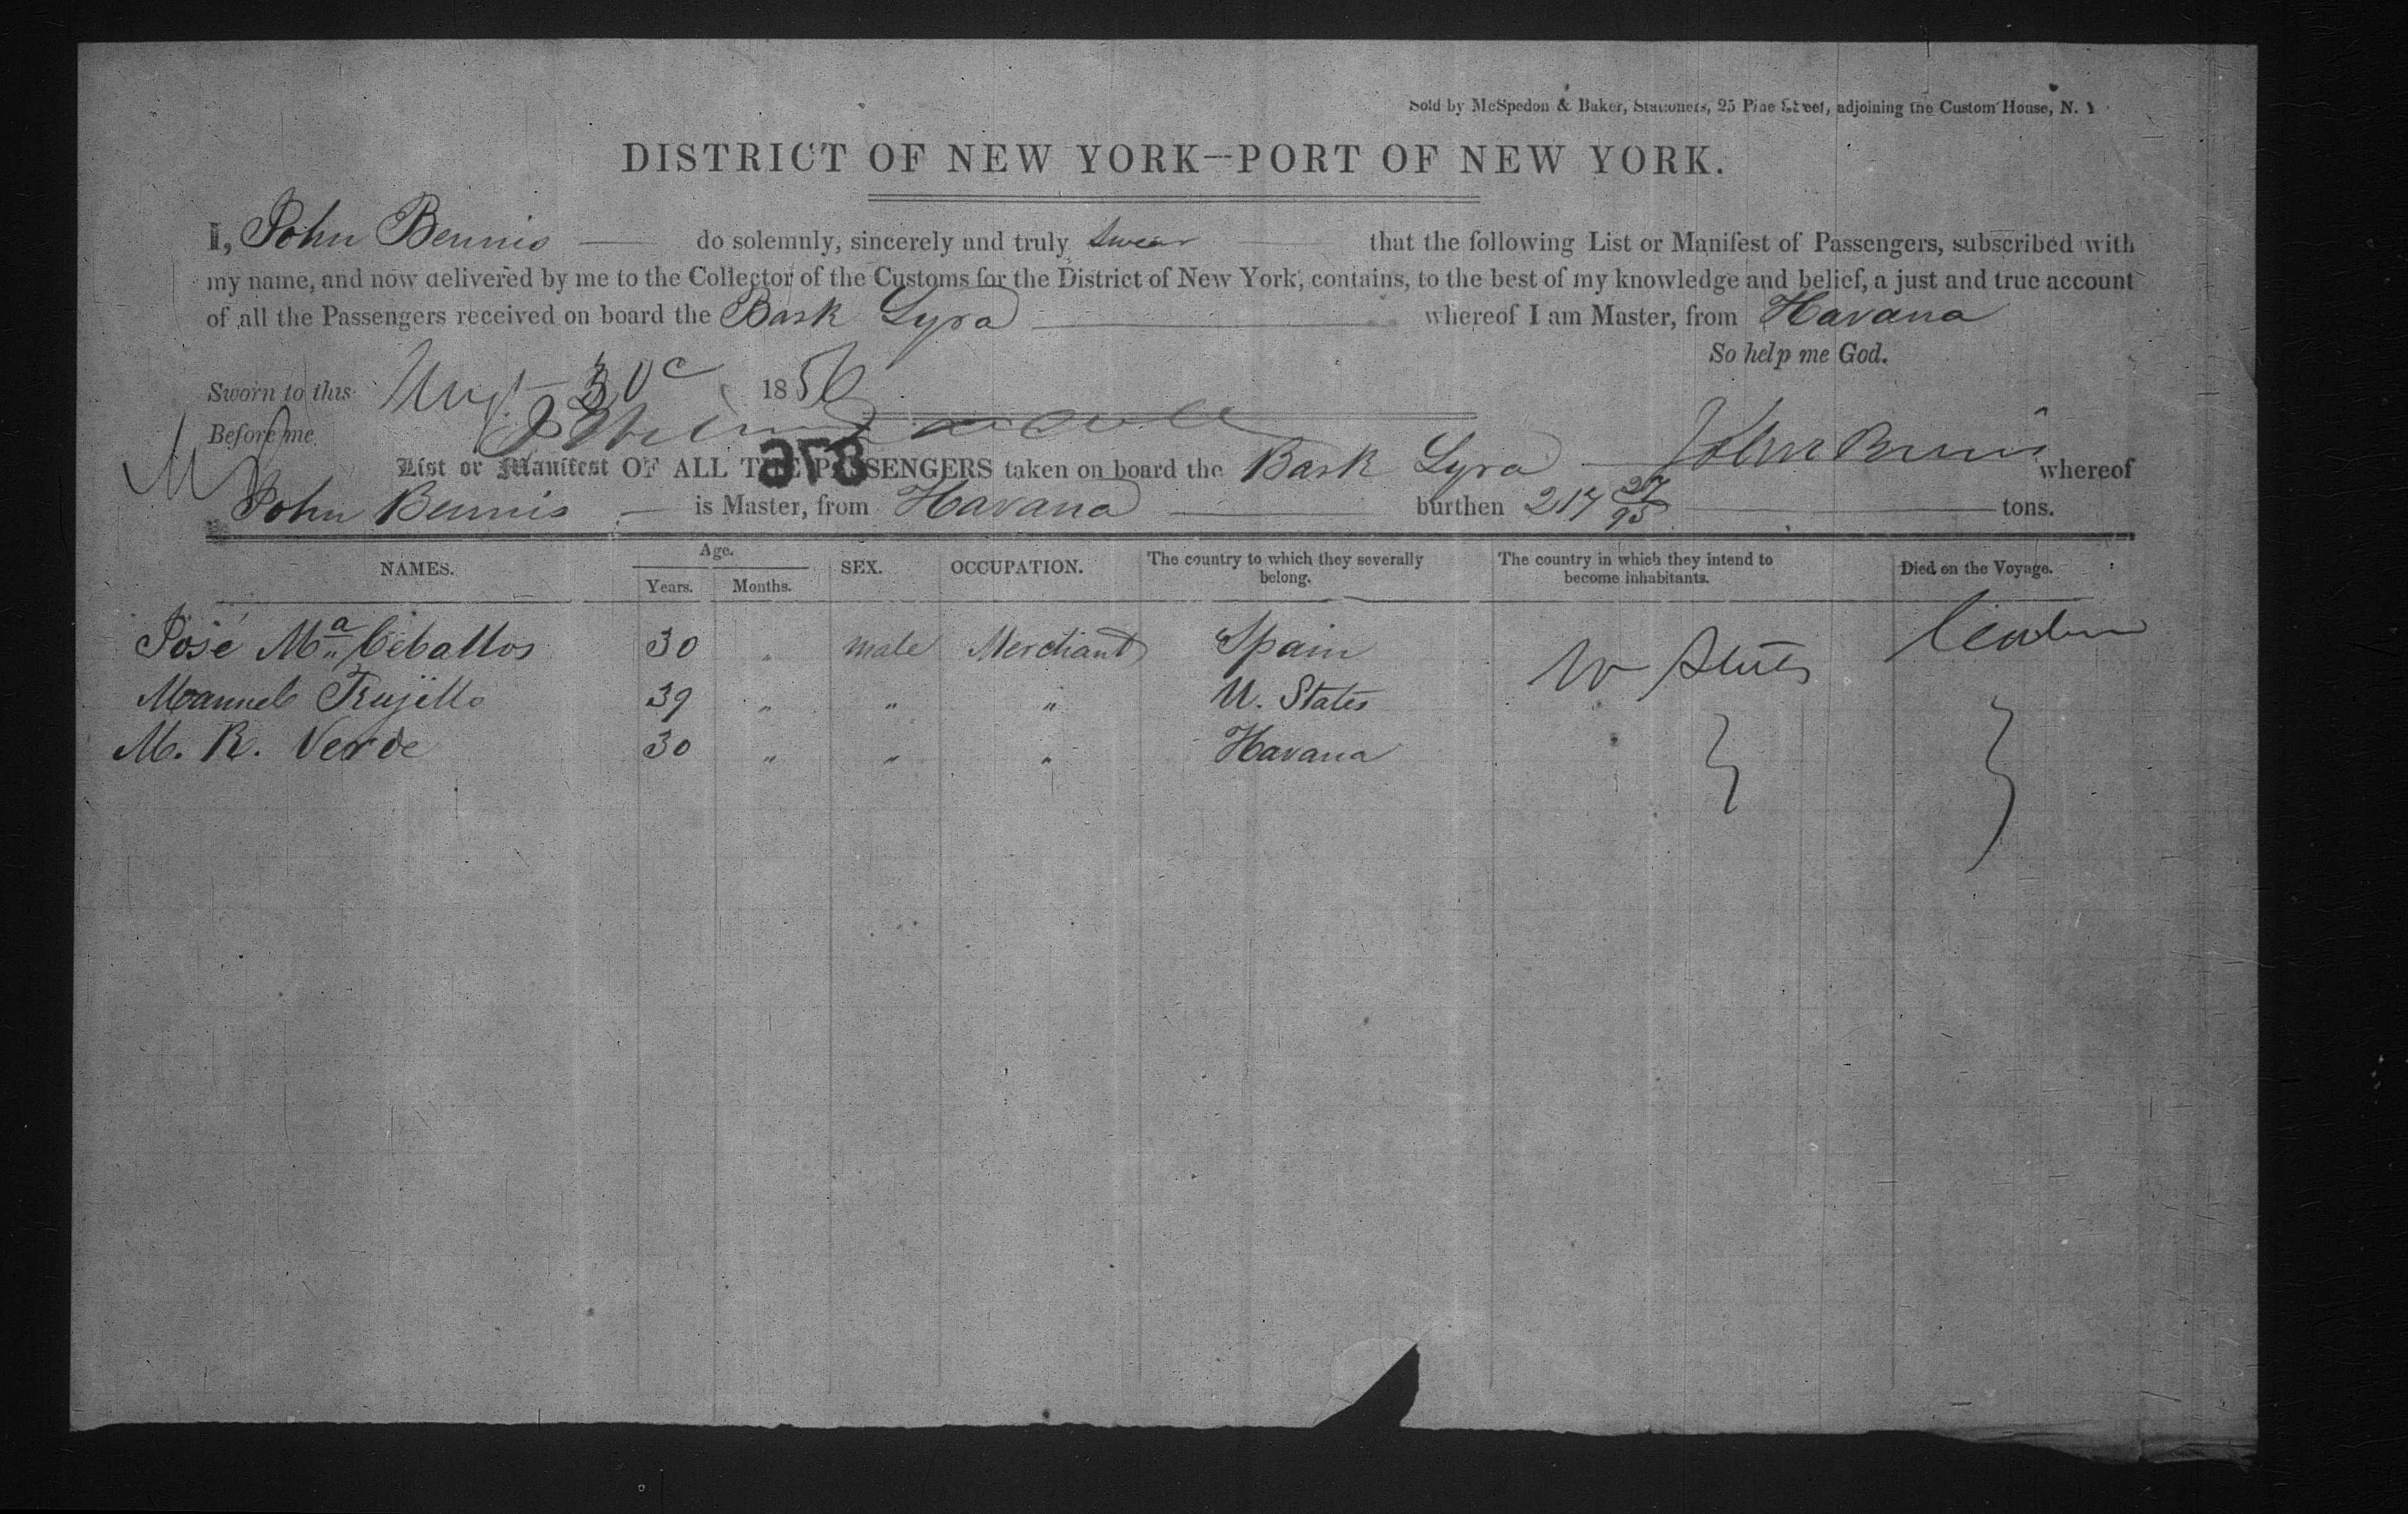 Sold by McSpedon & Baker, Stationers, 25 Pine Street, adjoining the Custom House, N. Y
DISTRICT OF NEW YORK—PORT OF NEW YORK.
I, John Bennis do solemnly, sincerely and truly swear that the following List or Manifest of Passengers, subscribed with
my name, and now delivered by me to the Collector of the Customs for the District of New York, contains, to the best of my knowledge and belief, a just and true account
of all the Passengers received on board the Bark Lyra whereof I am Master, from Havana
So help me God.
Sworn to this Augt 30 1856
Before me
John Bennis
978
List or Manifest OF ALL THE PASSENGERS taken on board the Bark Lyra whereof
John Bennis is Master, from Havana burthen 217 27/95 tons.
NAMES. Age. Years. Months. SEX. OCCUPATION. The country to which they severally belong. The country in which they intend to become inhabitants. Died on the Voyage.
José Ma Ceballos 30 " male Merchant Spain U States
Manuel Trujillo 39 " " " U. States
M. R. Verde 30 " " " Havana